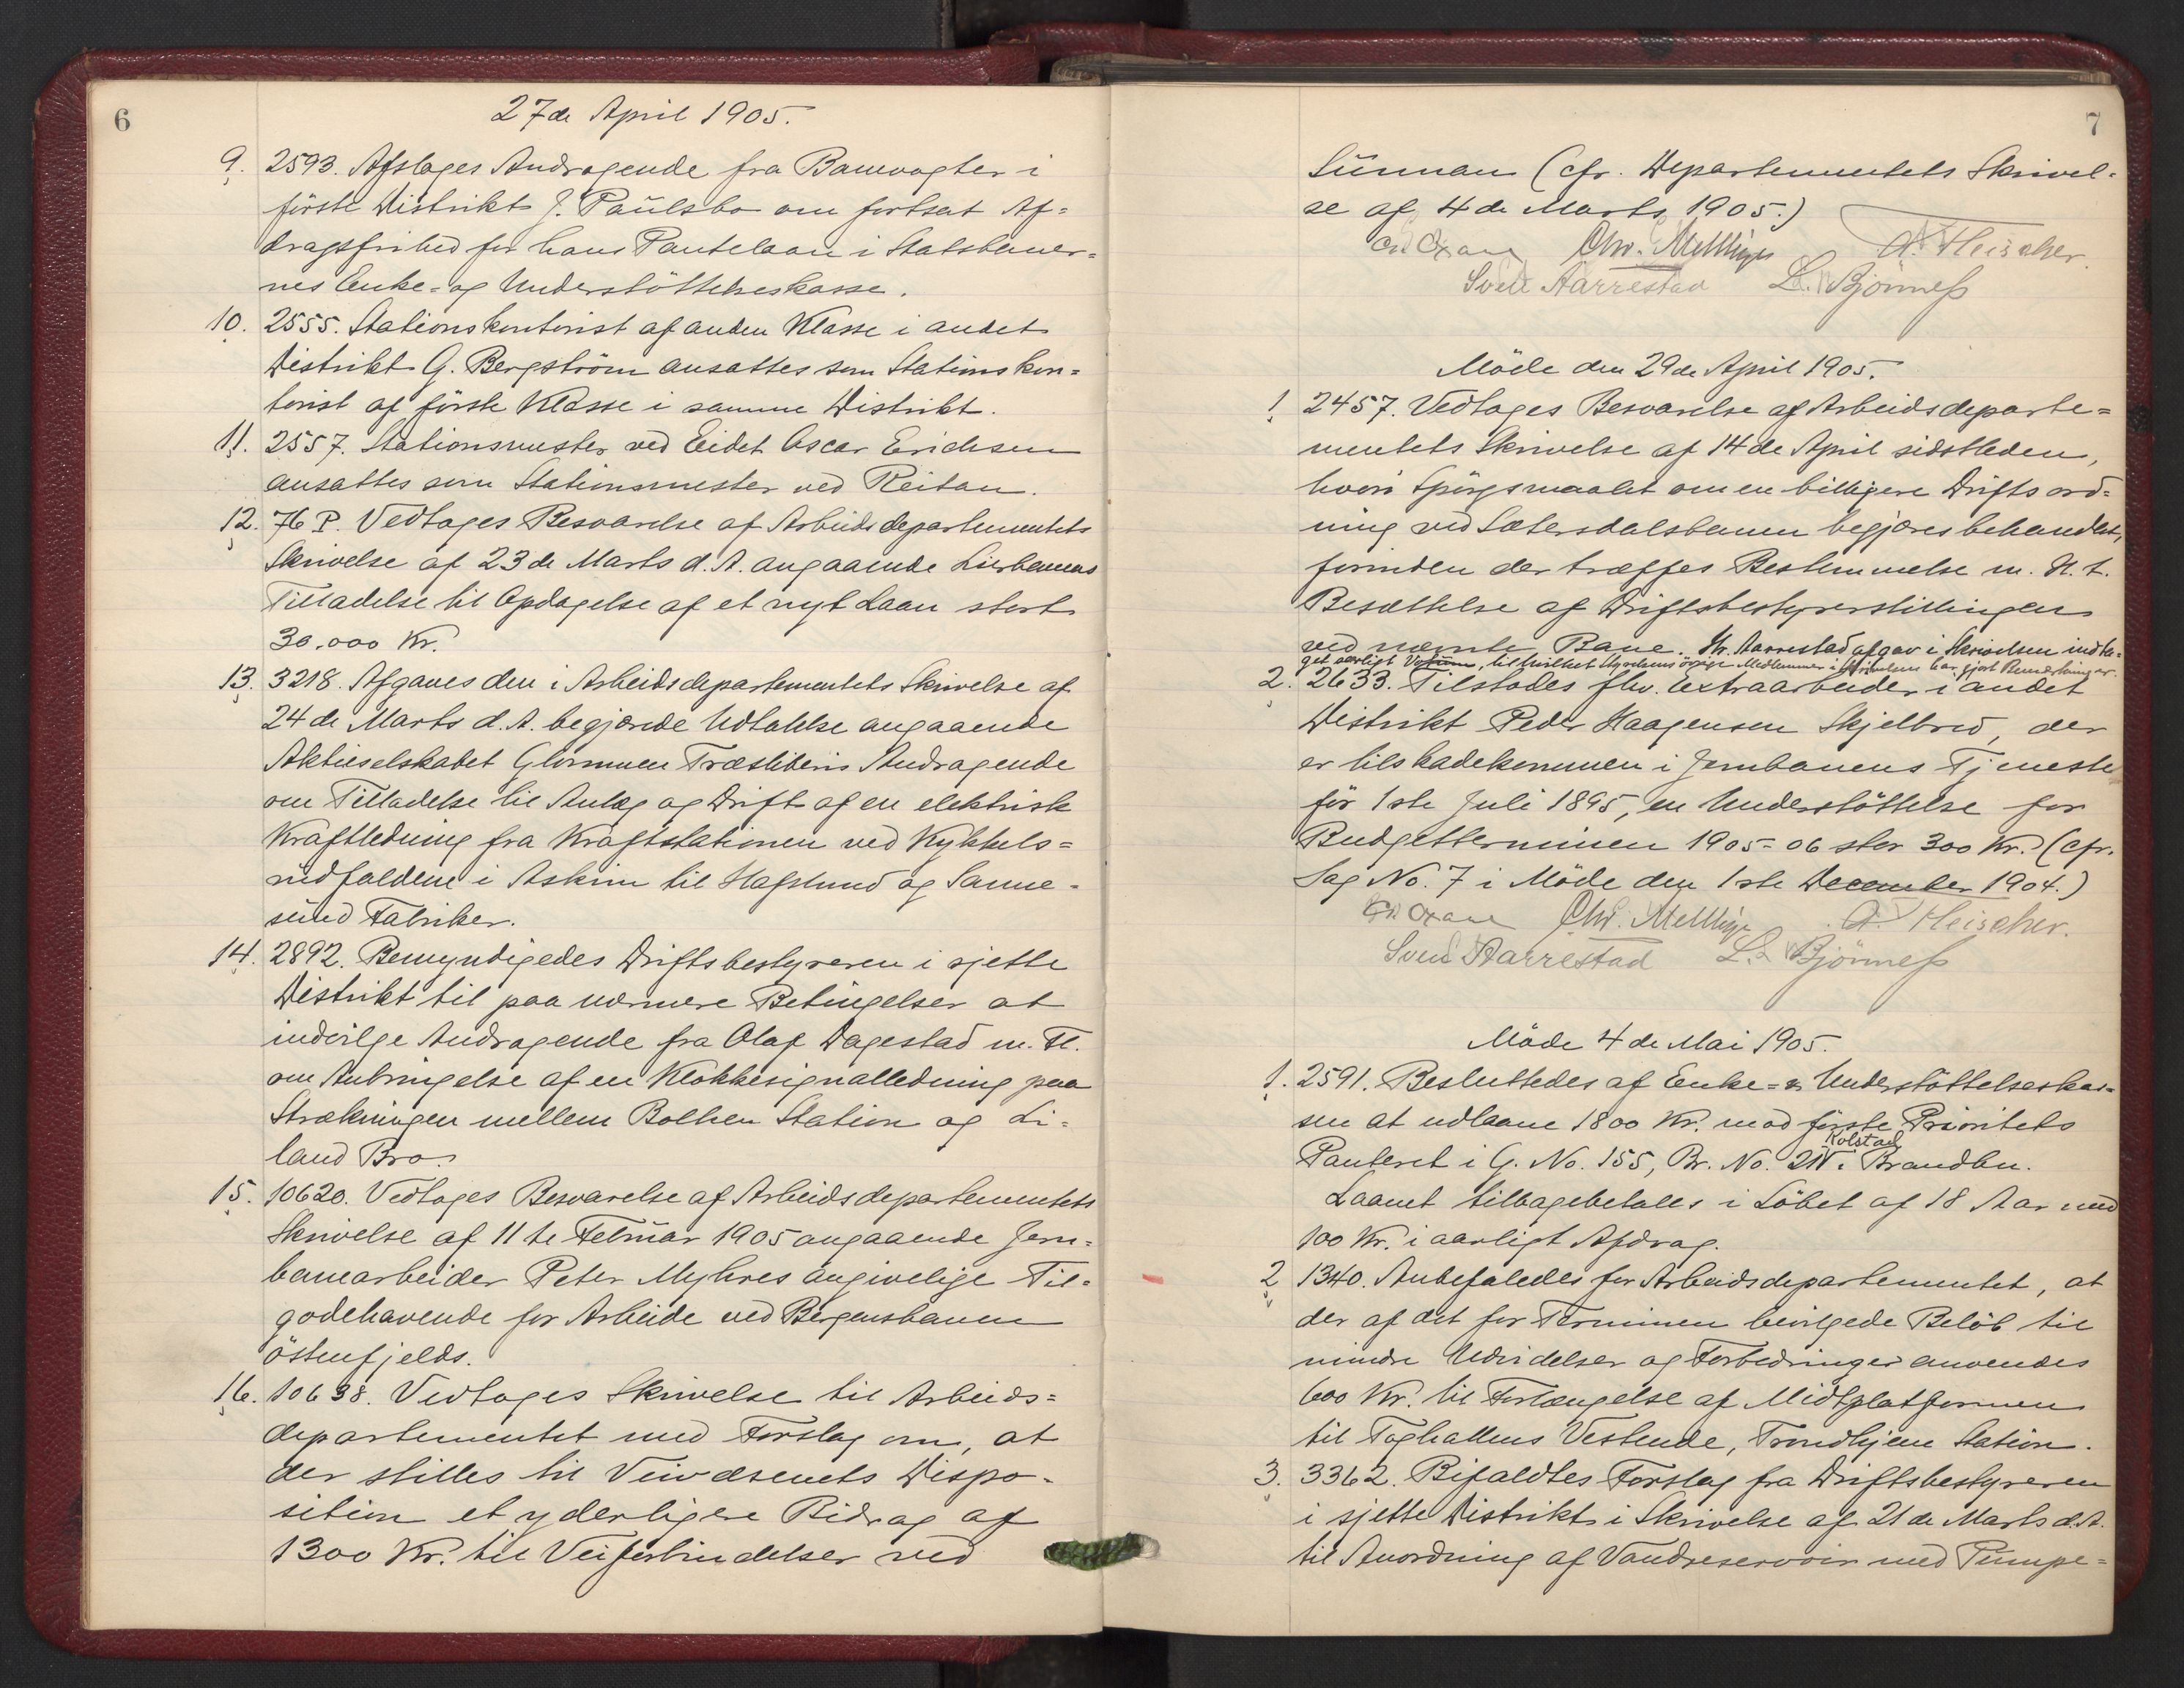 6
27de April 1905.
9. 2593. Afslages Andragende fra Banevogter i
förste Distrikt J. Paulsbo om fortsat Af=
dragsfrihed for hans Pantelaan i Statsbaner=
nes Enke- og Understöttelseskasse.
10. 2555. Stationskontorist af anden Klasse i andet
Distrikt G. Bergström ansattes som Stationskon=
torist af förste Klasse i samme Distrikt.
11. 2557. Stationsmester ved Eidet Oscar Erichsen
ansattes som Stationsmester ved Reitan.
12. 76 P. Vedtages Besvarelse af Arbeidsdepartementets
Skrivelse af 23de Marts d. A. angaaende Lierbanens
Tilladelse til Optagelse af et nyt Laan stort
30.000 Kr.
13. 3218. Afgaves den i Arbeidsdepartementets Skrivelse af
24de Marts d. A. begjærede Udtalelse angaaende
Aktieselskabet Glommen Træsliberis Andragende
om Tilladelse til Anlæg og Drift af en elektrisk
Kraftledning fra Kraftstationen ved Kykkels=
rudfaldene i Askim til Hafslund og Sanne=
sund Fabriker.
14. 2892. Bemyndigedes Driftsbestyreren i sjette
Distrikt til paa nærmere Betingelser at
indvilge Andragende fra Olaf Dagestad m. Fl.
om Anbringelse af en Klokkesignalledning paa
Strækningen mellem Bolken Station og Li=
land Bro.
15. 10620. Vedtages Besvarelse af Arbeidsdepartementets
Skrivelse af 11te Februar 1905 angaaende Jern=
banearbeider Peter Myhres angivelige Til=
godehavende for Arbeide ved Bergensbanen
östenfjelds.
16. 10638. Vedtages Skrivelse til Arbeids=
departementet med Forslag om, at
der stilles til Veivæsenets Dispo=
sition et yderligere Bidrag af
1300 Kr. til Veiforbindelser ved
7
Sunnan (cfr. Departementets Skrivel=
se af 4de Marts 1905.)
Chr. Mellbye A. Fleischer.
Sven Aarrestad L. Bjönness
Möde den 29de April 1905.
1. 2457. Vedtages Besvarelse af Arbeidsdeparte=
mentets Skrivelse af 14de April sidstleden,
hvori Spörgsmaalet om en billigere Driftsord=
ning ved Sætersdalsbanen begjæres behandlet,
forinden der træffes Bestemmelse m. H. t.
Besættelse af Driftsbestyrerstillingen
ved nævnte Bane. Hr. Aarrestad afgav i Skrivelsen indta=
get særligt Votum, til hvilket Styrelsens övrige Medlemmer i Skrivelsen har gjort Bemærkninger.
2. 2633. Tilstodes fhv. Extraarbeider i andet
Distrikt Peder Haagensen Skjelbred, der
er tilskadekommen i Jernbanens Tjeneste
för 1ste Juli 1895, en Understöttelse for
Budgetterminen 1905-06 stor 300 Kr. (cfr.
Sag No. 7 i Möde den 1ste December 1904.)
Chr. Mellbye A. Fleischer.
Sven Aarrestad L. Bjönness
Möde 4de Mai 1905.
1. 2591. Besluttedes af Enke- & Understöttelseskas=
sen at udlaane 1800 Kr. mod förste Prioritets
Kolstad
Panteret i G. No. 155, Br. No. 21 i Brandbu.
Laanet tilbagebetales i Löbet af 18 Aar med
100 Kr. i aarligt Afdrag.
2 1340. Anbefaledes for Arbeidsdepartementet, at
der af det for Terminen bevilgede Belöb til
mindre Udvidelser og Forbedringer anvendes
600 Kr. til Forlængelse af Midtplatformen
til Toghallens Vestende, Trondhjem Station.
3. 3362. Bifaldtes Forslag fra Driftsbestyreren
i sjette Distrikt i Skrivelse af 21de Marts d. A.
til Anordning af Vandreservoir med Pumpe=